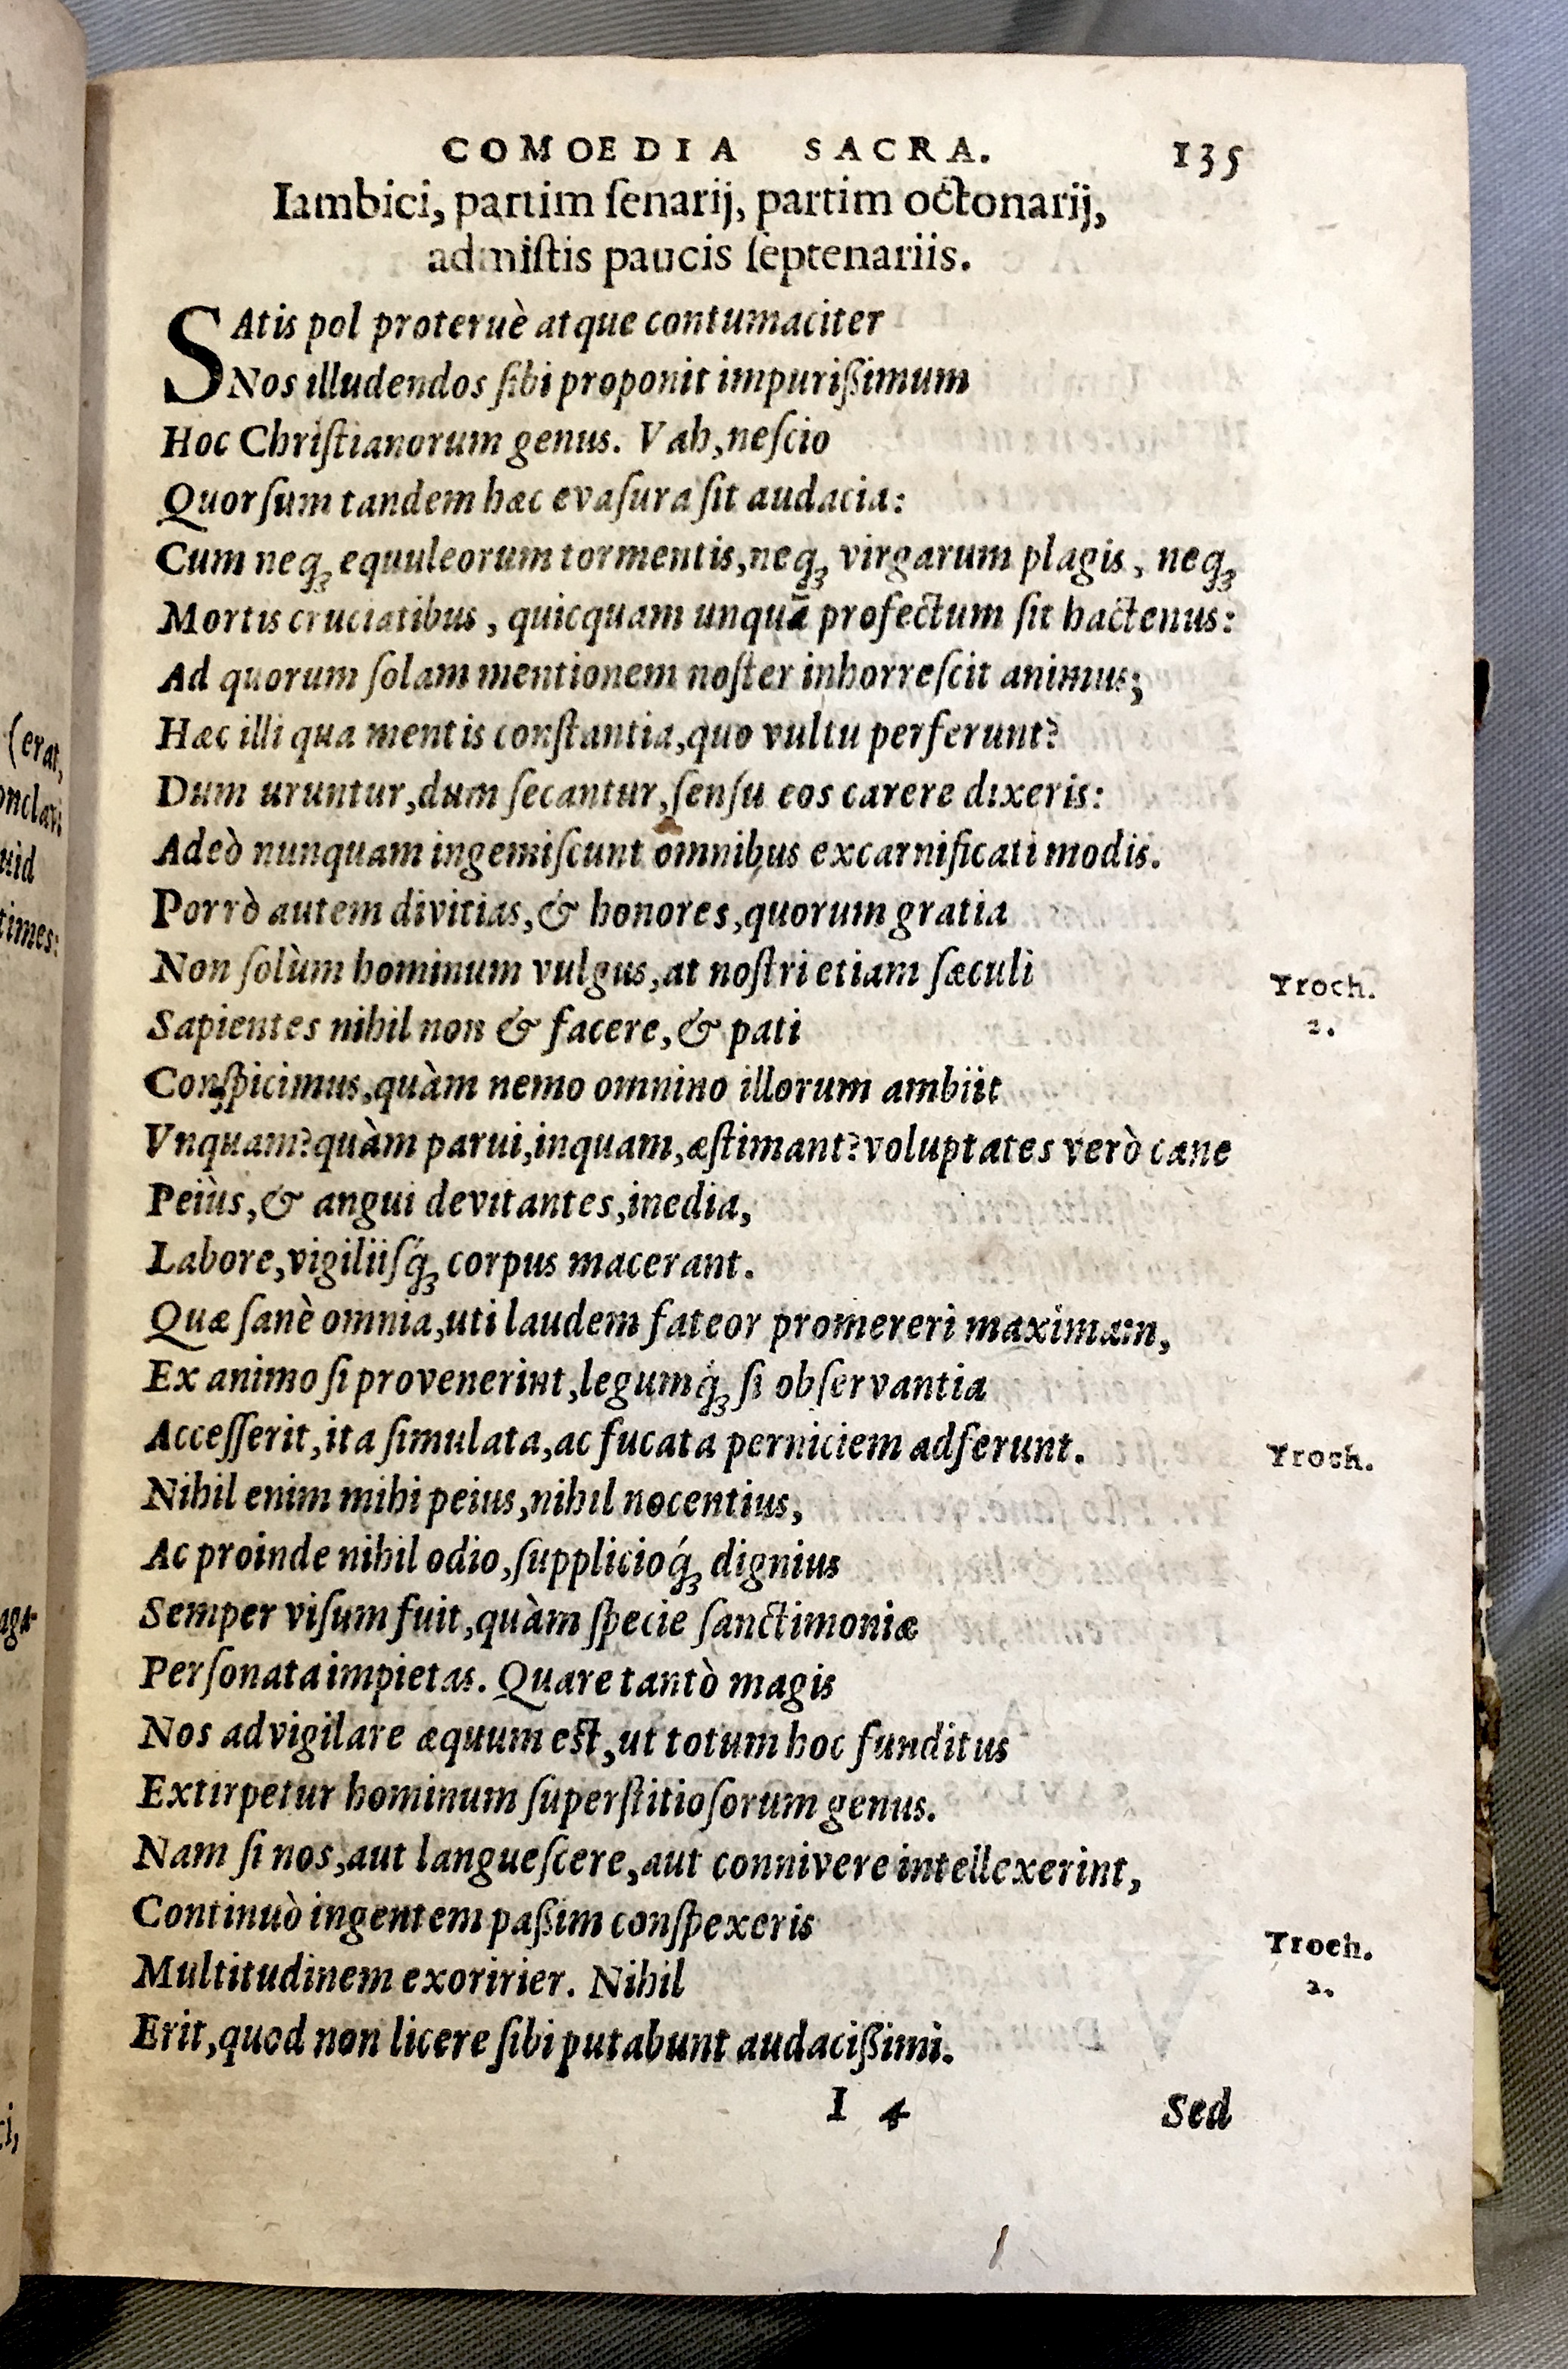 COMOEDIA SACRA. 135
Iambici, partim ſenarij, partim octonarij,
admiſtis paucis ſeptenariis.
SAtis pol proteruè atque contumaciter
Nos illudendos ſibi proponit impurißimum
Hoc Chriſtianorum genus. Vah, neſcio
Quorſum tandem hæc evaſura ſit audacia:
Cum neqꝫ equuleorum tormentis, neqꝫ virgarum plagis, neqꝫ
Mortis cruciatibus, quicquam unquã profectum ſit hactenus:
Ad quorum ſolam mentionem noſter inhorreſcit animus;
Hæc illi qua mentis conſtantia, quo vultu perferunt?
Dum uruntur, dum ſecantur, ſenſu eos carere dixeris:
Adeò nunquam ingemiſcunt omnibus excarnificati modis.
Porrò autem divitias, & honores, quorum gratia
Non ſolùm hominum vulgus, at noſtri etiam ſæculi
Troch.
2.
Sapientes nihil non & facere, & pati
Conſpicimus, quàm nemo omnino illorum ambiit
Vnquam? quàm parui, inquam, æſtimant? voluptates verò cane
Peiùs, & angui devitantes, inedia,
Labore, vigiliiſq́ꝫ corpus macerant.
Quæ ſanè omnia, uti laudem fateor promereri maximam,
Ex animo ſi provenerint, legumq́ꝫ ſi obſervantia
Acceſſerit, ita ſimulata, ac fucata perniciem adferunt.
Troch.
Nihil enim mihi peius, nihil nocentius,
Ac proinde nihil odio, ſupplicioq́ꝫ dignius
Semper viſum fuit, quàm ſpecie ſanctimoniæ
Perſonata impietas. Quare tantò magis
Nos advigilare æquum eſt, ut totum hoc funditus
Extirpetur hominum ſuperſtitioſorum genus.
Nam ſi nos, aut langueſcere, aut connivere intellexerint,
Continuò ingentem paßim conſpexeris
Troch.
2.
Multitudinem exoririer. Nihil
Erit, quod non licere ſibi putabunt audacißimi.
I 4 Sed
(erat,
uid
times: